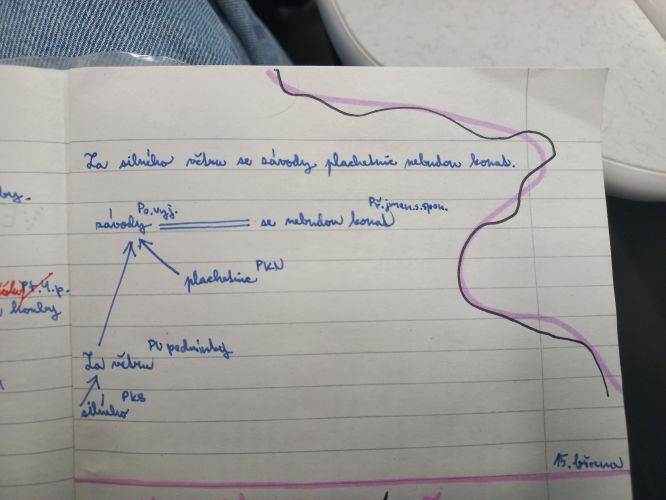 by.
Za silného větru se závody plachetnic nebudou konat.
závody Po.vyj. se nebudou konat
plachetnic PKN
Př.4.p.
houby
Za větru PU podmínky
silného PKS
15. března